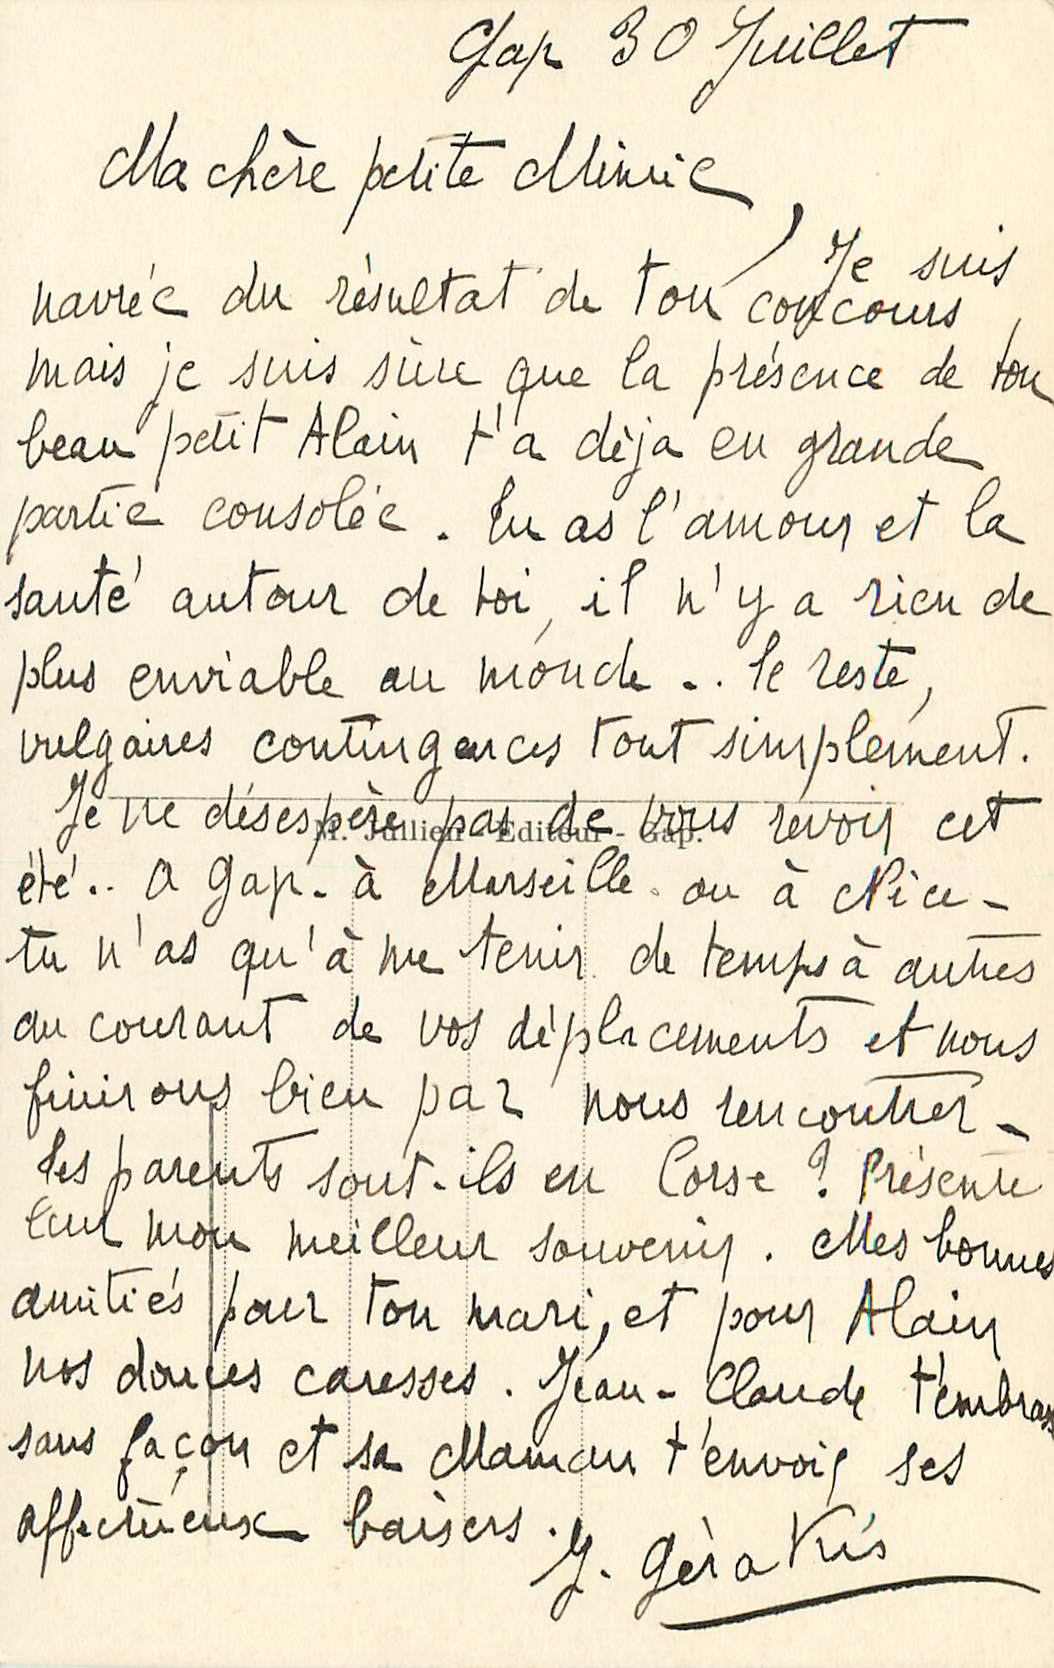 Gap 30 Juillet
Ma chère petite Mimie,
Je suis
navrée du résultat de ton concours,
mais je suis sûre que la présence de ton
beau petit Alain t'a déja en grande
partie consolée. Tu as l'amour et la
santé autour de toi, il n'y a rien de
plus enviable au monde.. le reste,
vulgaires contingences tout simplement.
Je ne désespère pas de vous revoir cet
M. Jullien - Editeur - Gap.
été.. A Gap - à Marseille ou à Nice -
tu n'as qu'à me tenir de temps à autres
au courant de vos déplacements et nous
finirons bien par nous rencontrer -
Tes parents sont-ils en Corse ? Présente
leur mon meilleur souvenir. Mes bonnes
amitiés pour ton mari, et pour Alain
nos douces caresses. Jean-Claude t'embrasse
sans façon et sa Maman t'envoie ses
affectueux baisers.
Y. Gérakis